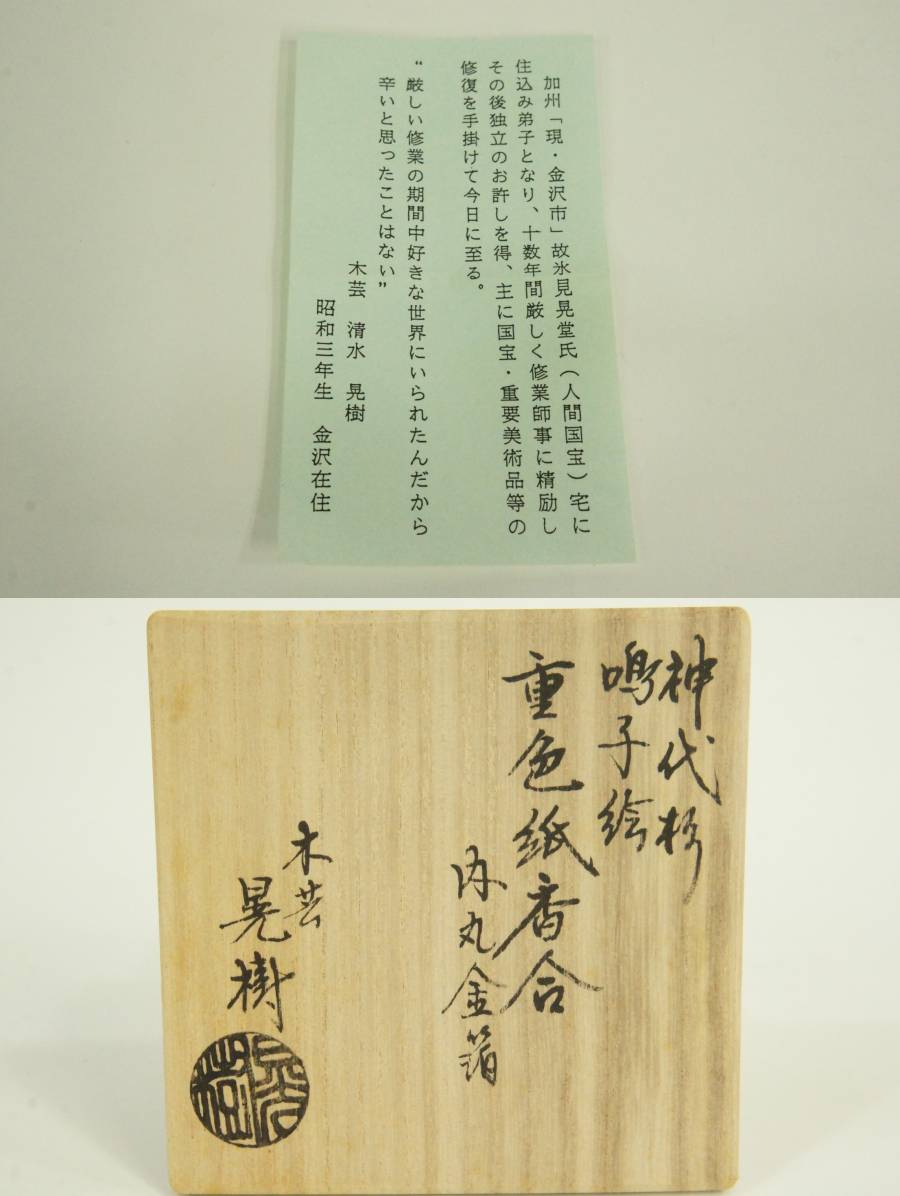 加州「現・金沢市」故氷見晃堂氏（人間国宝）宅に
住込み弟子となり、十数年間厳しく修業師事に精励し
その後独立のお許しを得、主に国宝・重要美術品等の
修復を手掛けて今日に至る。
“厳しい修業の期間中好きな世界にいられたんだから
辛いと思ったことはない”
木芸　清水　晃樹
昭和三年生　金沢在住
神代杉
鳴子絵
重色紙香合
内丸金箔
木芸
晃樹
晃樹